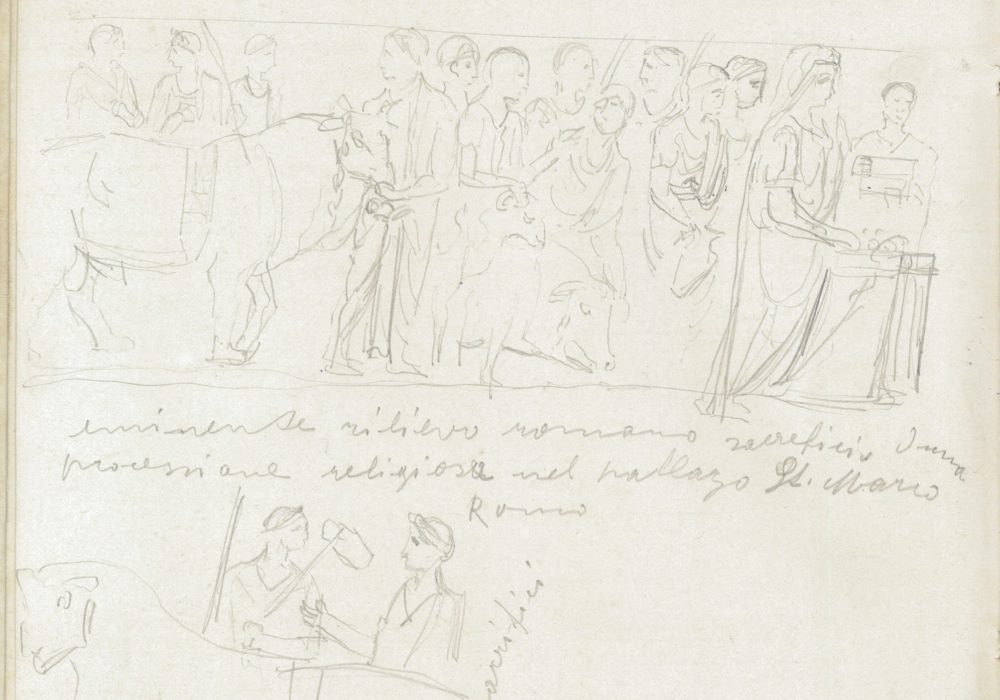 eminente rilievo romano sacreficio d'una
processione religiosa nel pallazo St. Marco
Roma